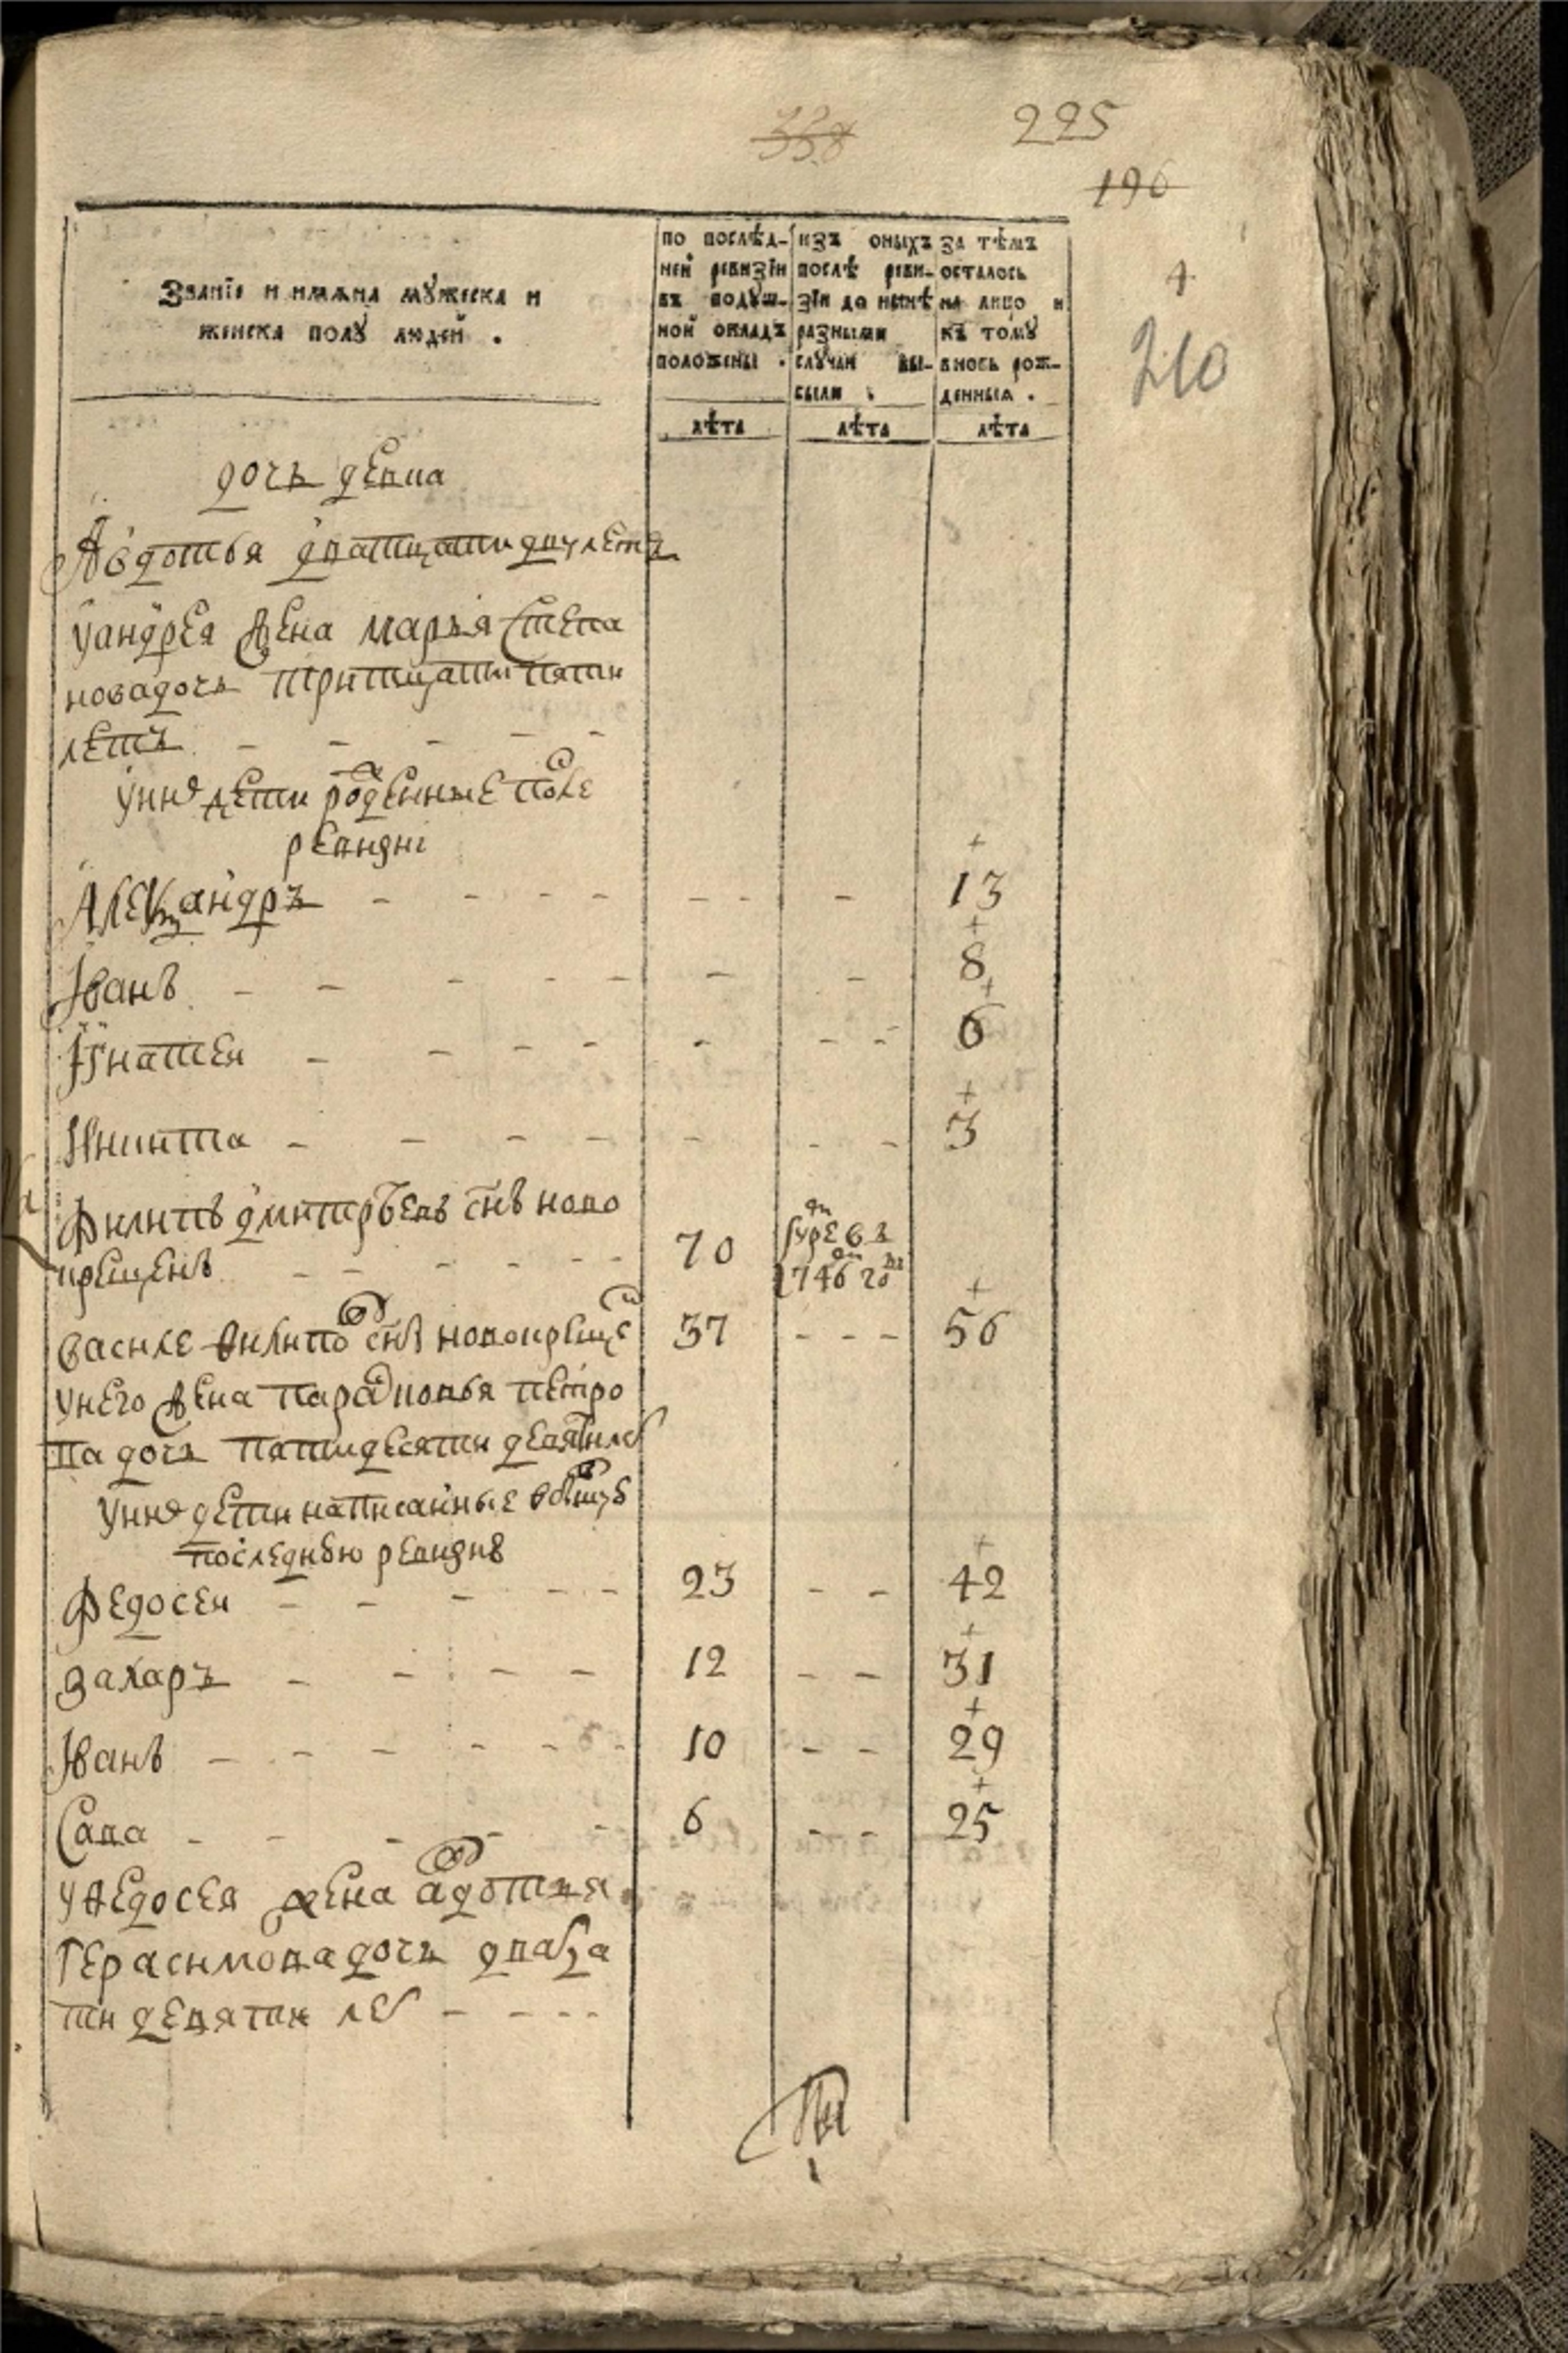 338
225
196
4
210
Званїе и имѧна мꙋжеска и
женска полꙋ людей .
по послѣд-
ней ревизїи
въ подꙋш-
ной окладъ
положены .
изъ оныхъ
послѣ реви-
зїи до нынѣ
разными
слꙋчаи вы-
были .
за тѣмъ
осталось
на лицо и
къ томꙋ
вновь рож-
денныѧ .
лѣта лѣта лѣта
дочь девка
Авдотья дватцати двух летъ
уандрея жена марья степа
новадочь тритцати пяти
летъ - - - - -
унихъ дети рожденные после
ревизиі
Александръ - - - - - - - - 13
Іванъ - - - - - - - 8
Ігнатеи - - - - - - - 6
Никита - - - - - - - 3
Филипъ дмитрьевъ снъ ново
крещенъ - - - - - - 70
умре въ
1746 году
василеи филиповъ снъ новокрещенъ 37 - - - 56
унего жена парасковья петро
ва дочь пятидесяти девяти летъ
унихъ дети написанные вбывшую
последнюю ревизию
Федосеи - - - - - 23 - - 42
захаръ - - - - 12 - - 31
Іванъ - - - - - - 10 - - 29
Сава - - - - - 6 - - 25
уфедосея жена авдотья
герасимова дочь дватца
ти девяти летъ - - - -